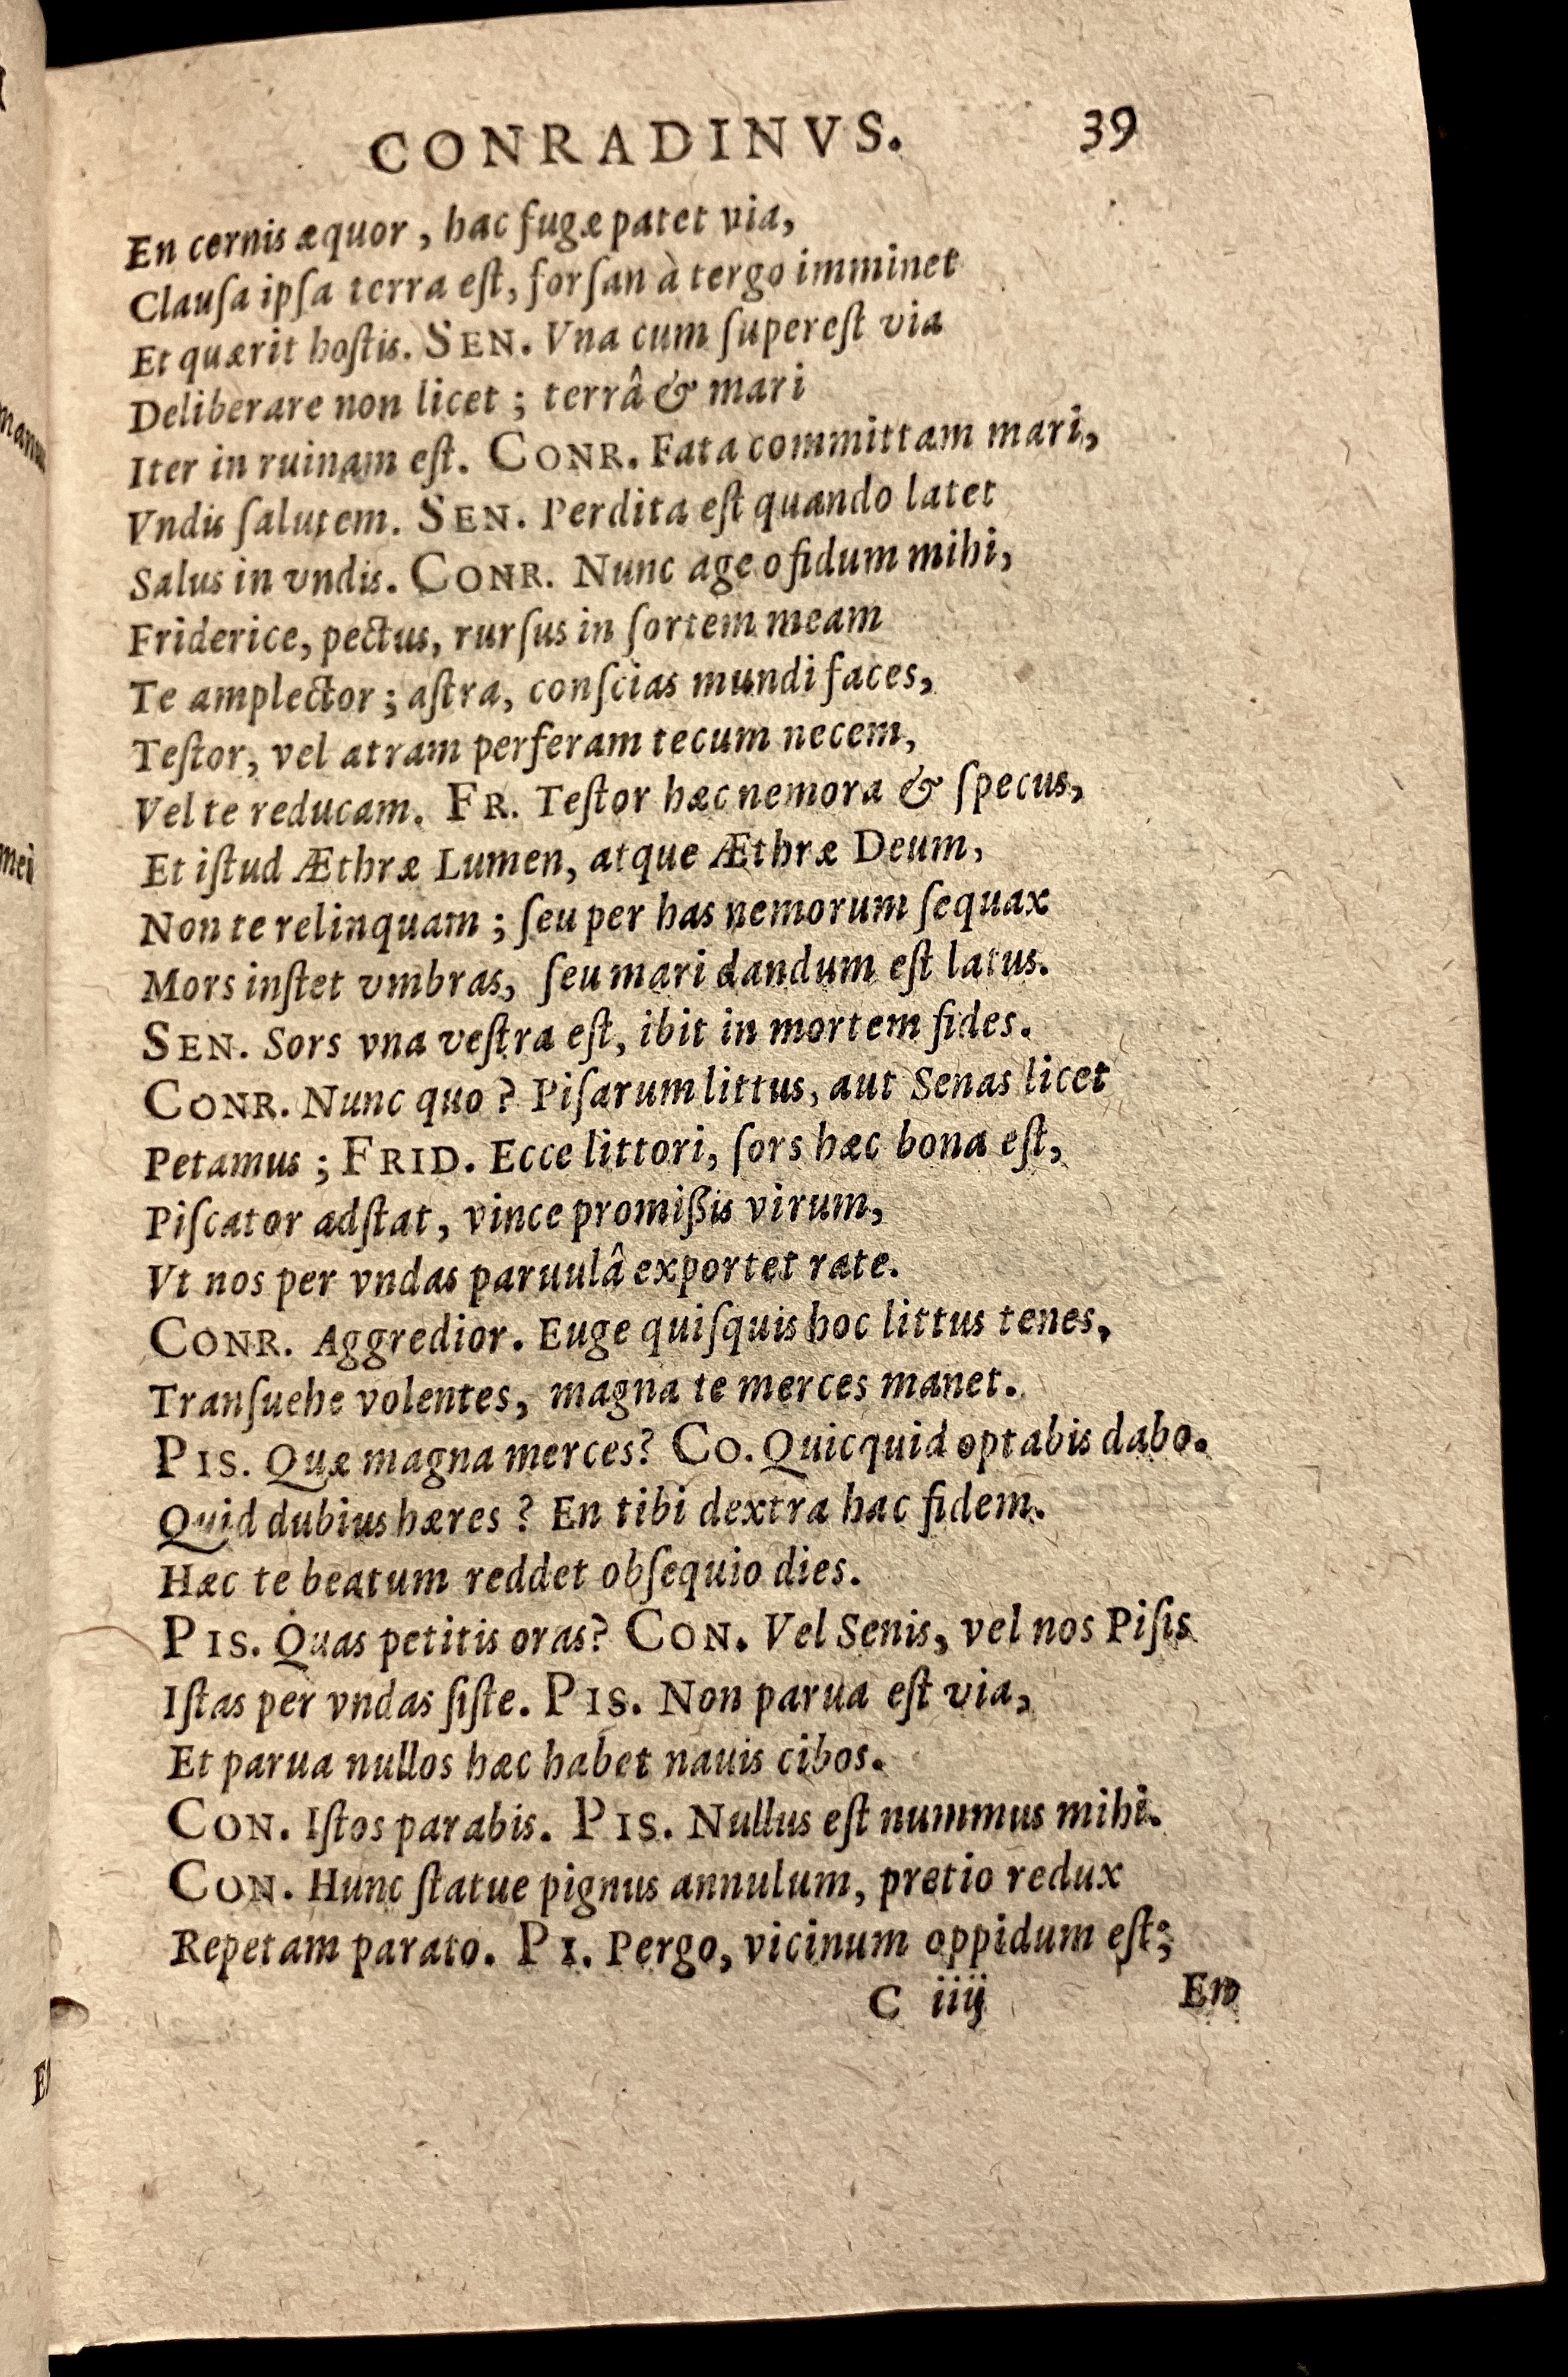 CONRADINVS. 39
En cernis æquor, hac fugæ patet via,
Clauſa ipſa terra eſt, forſan à tergo imminet
Et quærit hoſtis. SEN. Vna cum ſupereſt via
Deliberare non licet ; terrâ & mari
Iter in ruinam eſt. CONR. Fata committam mari,
Vndis ſalutem. SEN. Perdita eſt quando latet
Salus in vndis. CONR. Nunc age o fidum mihi,
Friderice, pectus, rurſus in ſortem meam
Te amplector ; aſtra, conſcias mundi faces,
Teſtor, vel atram perferam tecum necem,
Vel te reducam. FR. Teſtor hæc nemora & ſpecus,
Et iſtud Æthræ Lumen, atque Æthræ Deum,
Non te relinquam ; ſeu per has nemorum ſequax
Mors inſtet vmbras, ſeu mari dandum eſt latus.
SEN. Sors vna veſtra eſt, ibit in mortem fides.
CONR. Nunc quo ? Piſarum littus, aut Senas licet
Petamus ; FRID. Ecce littori, ſors hæc bona eſt,
Piſcator adſtat, vince promißis virum,
Vt nos per vndas paruulâ exportet rate.
CONR. Aggredior. Euge quiſquis hoc littus tenes,
Tranſuehe volentes, magna te merces manet.
PIS. Quæ magna merces? CO. Quicquid optabis dabo.
Quid dubius hæres ? En tibi dextra hac fidem.
Hæc te beatum reddet obſequio dies.
PIS. Quas petitis oras? CON. Vel Senis, vel nos Piſis
Iſtas per vndas ſiſte. PIS. Non parua eſt via,
Et parua nullos hæc habet nauis cibos.
CON. Iſtos parabis. PIS. Nullus eſt nummus mihi.
CON. Hunc ſtatue pignus annulum, pretio redux
Repetam parato. PI. Pergo, vicinum oppidum eſt;
C iiij En